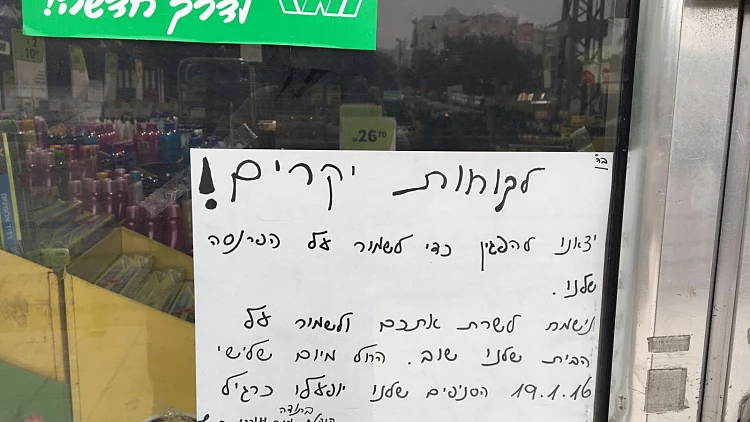 לדרך חדשה!!
26.70
בה"
לקוחות יקרים!
יצאנו להפגין כדי לשמור על הפרנסה
שלנו.
נישמח לשרת אתכם ולשמור על
הבית שלנו שוב. החל מיום שלישי
19.1.16 הסניפים שלנו יופעלו כרגיל
בתודה